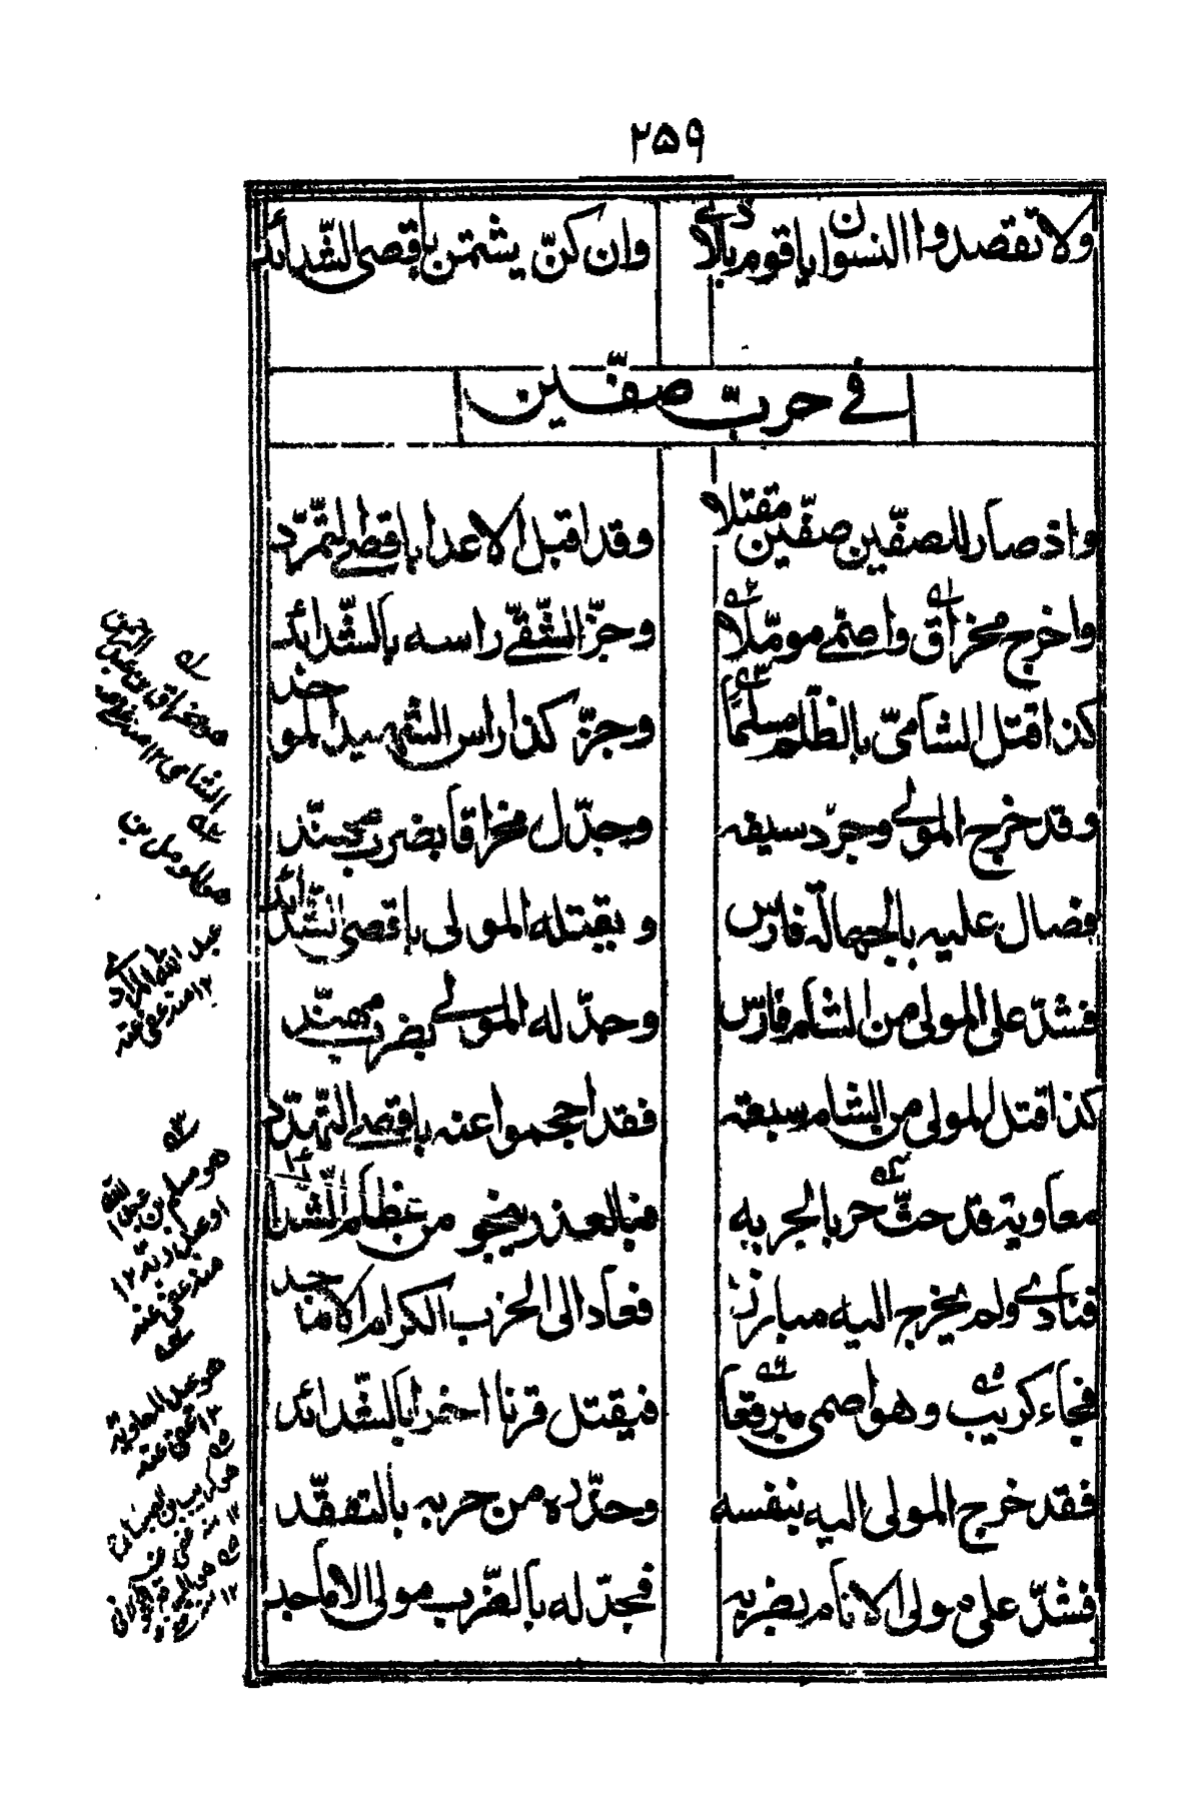 ۲۵۹
ولا تقصدوا النسوان يا قوم بالاذى وان كنّ يشتمن باقصى الشّدائد
فى حربّ صفّين
واذ صار للصفّين صفّين مقتلا وقد اقبل الاعدا باقصى التمرّد
واخرج مخراق واصمى مومّلا وجزّ الشقىّ راسه بالشّدائد
كذا قتل الشامىّ بالظّلم مسلمًا وجزّ كذا راس الشهيد الموحد
وقد خرج المولى وجرّد سيفه وجدّل مخراقا بضرب مهنّد
فصال عليه بالجهالّة فارس ويقتله المولى باقصى الشّدائد
فشدّ على المولى من الشام فارس وحدّ له المولى بضرب مهنّد
كذا قتل المولى من الشام سبعة فقد احجموا عنه باقصى التهدّد
معاوية قد حثّ حربا لحربه فبالعذر ينجو من عظام الشّدائد
فنادى ولم يخرج اليه مبارز فعاد الى الحزب الكرام الاماجد
فجاء كريب وهو اصمى مبرقعا فيقتل قرنا اخرا بالشّدائد
فقد خرج المولى اليه بنفسه وحذّره من حربه بالتفقّد
فشدّ على مولى الانام بضربه فجدّله بالضّرب مولى الاماجد
هو مخراق بن عبد الرحمن
هو المومل بن
عبد الله المرادى
۱۲ منه عفى عنه
هو مسلم بن عبد الله